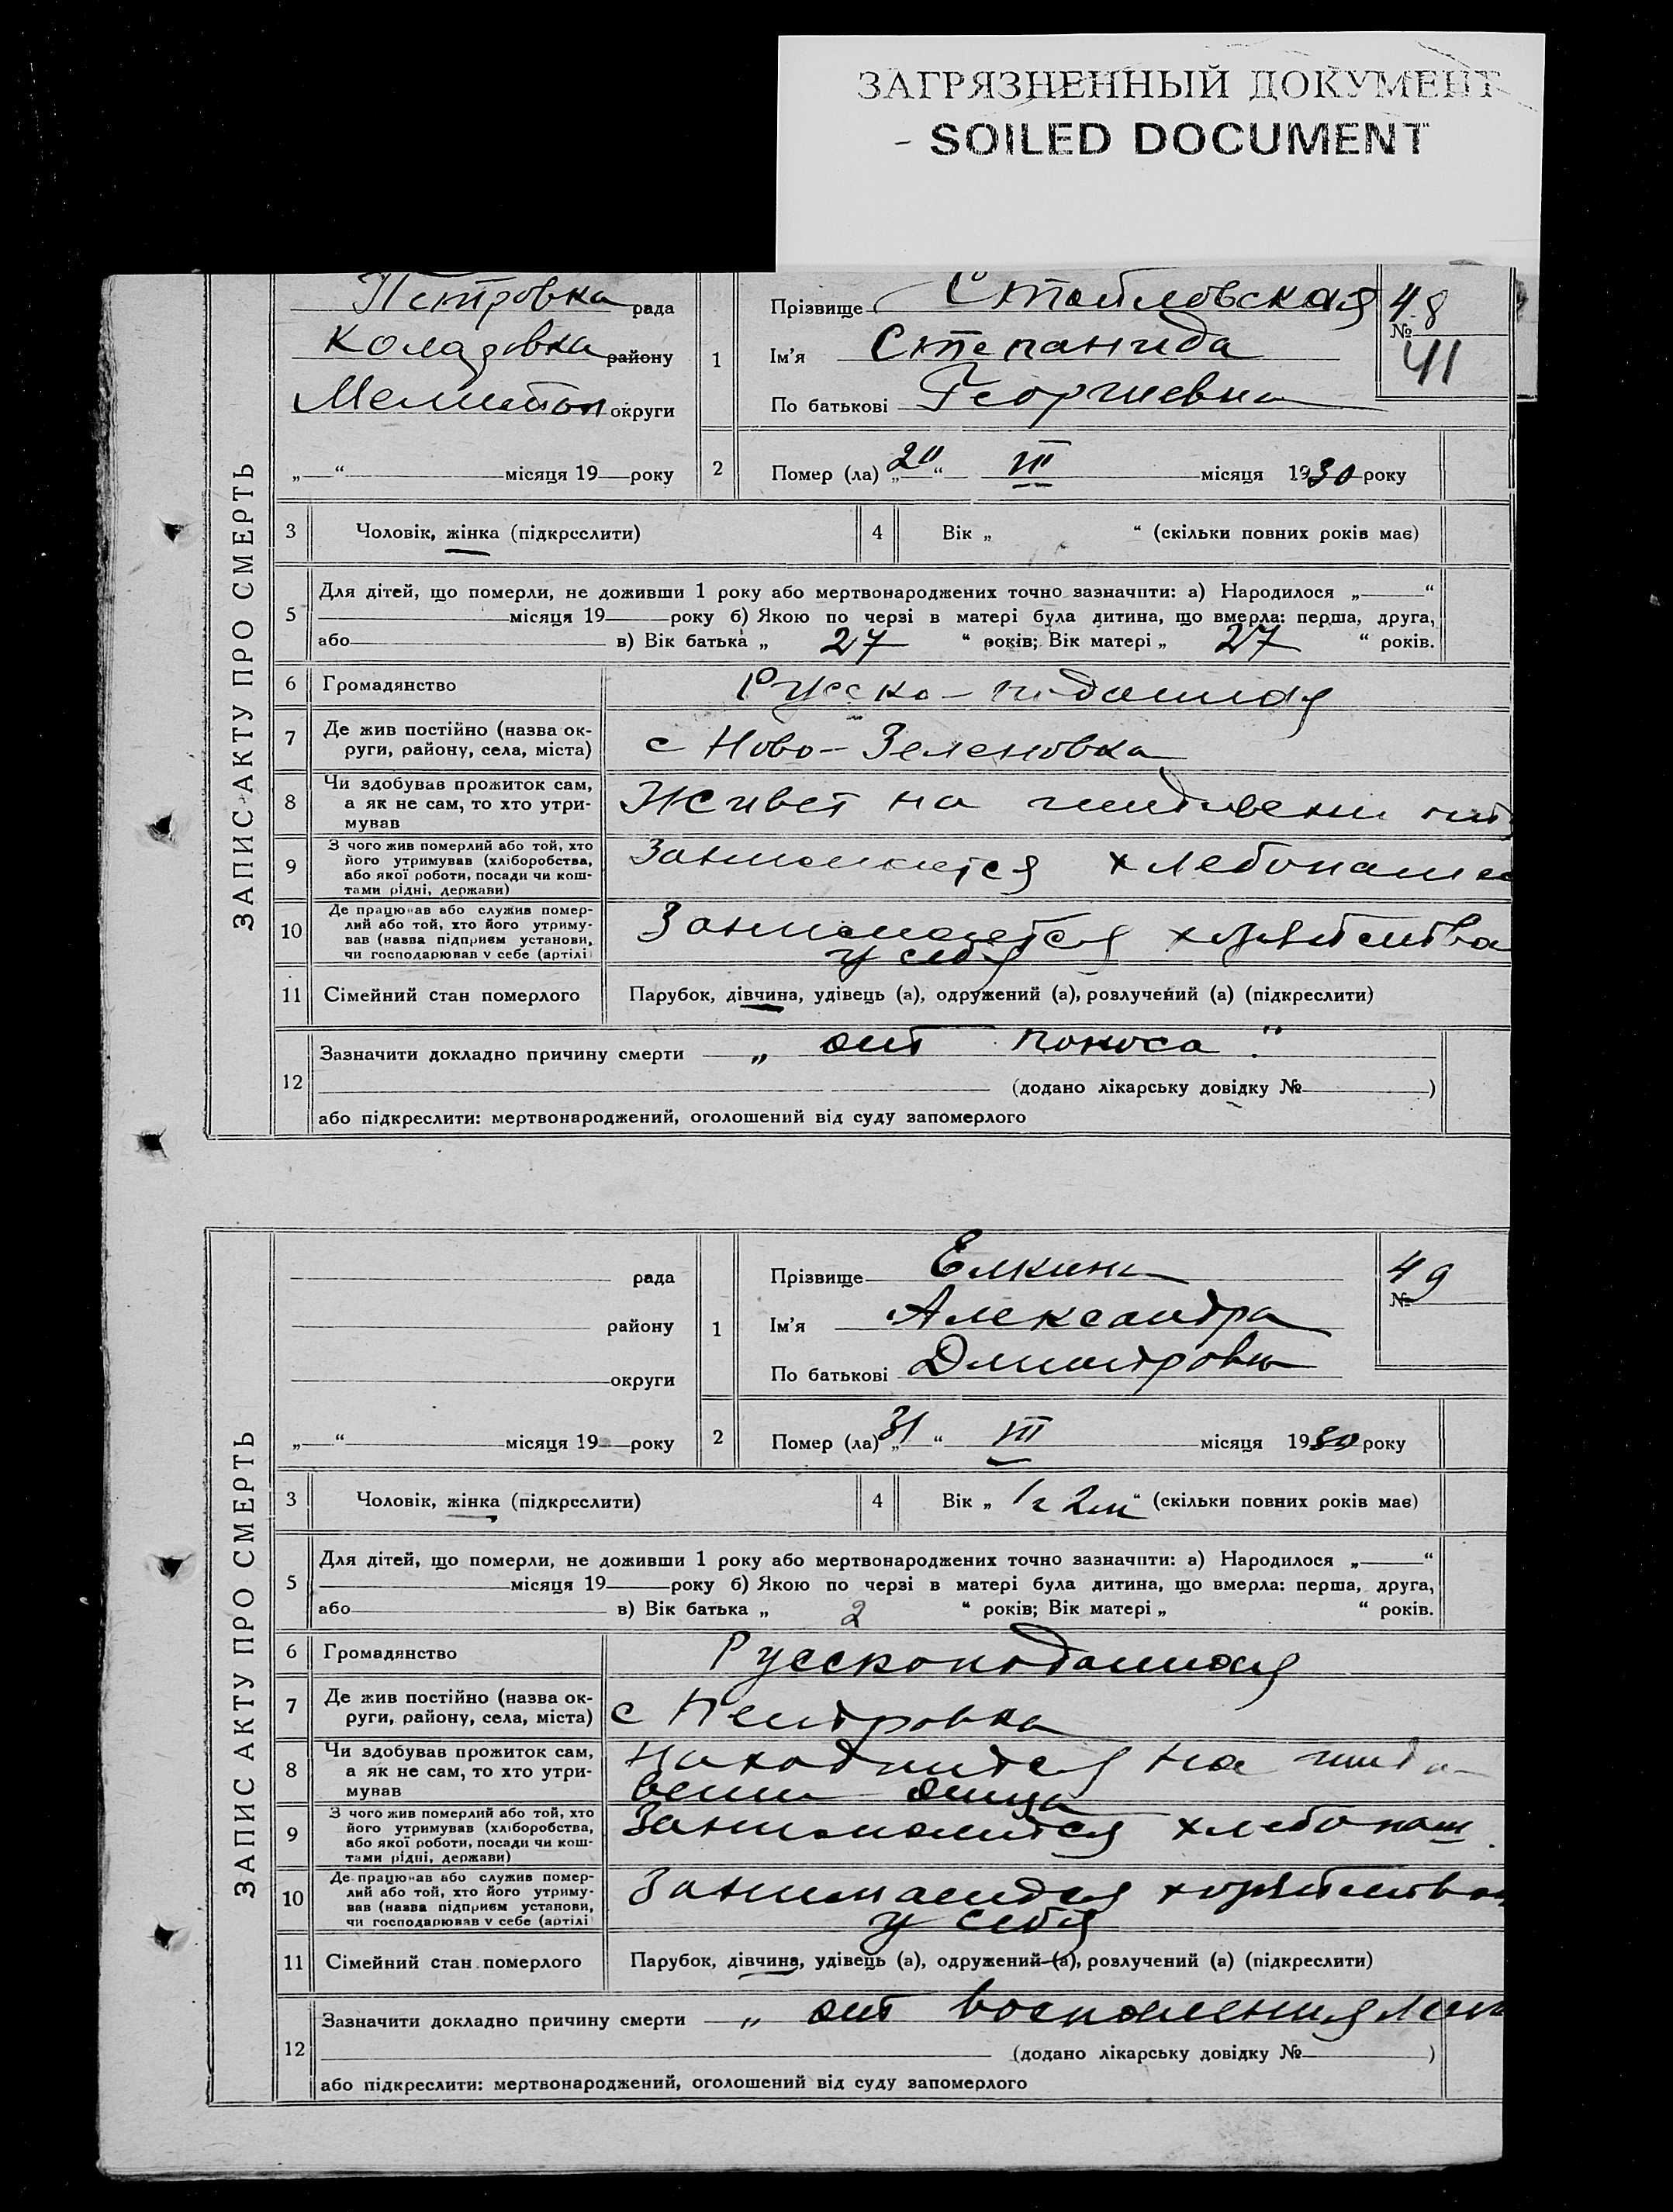 ЗАГРЯЗНЕННЫЙ ДОКУМЕНТ
- SOILED DOCUMENT
ЗАПИС АКТУ ПРО СМЕРТЬ
Петровка рада
района
Мелитоп округи
„ “ місяця 19 року
1
Прізвище
Ім’я Степанида
По батькові Георгиевна
48
№
41
2 Помер (ла) „20“ III місяця 1930 року
3 Чоловік, жінка (підкреслити)
4 Вік „ “ (скільки повних років має)
5 Для дітей, що померли, не доживши 1 року або мертвонароджених точно зазначити: а) Народилося „ “
місяця 19 року б) Якою по черзі в матері була дитина, що вмерла: перша, друга,
або в) Вік батька „ 27 “ років; Вік матері „ 27 “ років.
6 Громадянство Русско-подданная
7 Де жив постійно (назва ок-
руги, району, села, міста)
с Ново-Зеленовка
8 Чи здобував прожиток сам,
а як не сам, то хто утри-
мував
Живет на
9 З чого жив померлий або той, хто
його утримував (хліборобства,
або якої роботи, посади чи кош-
тами рідні, держави)
Занимается хлебопаше
10 Де працював або служив помер-
лий або той, хто його утриму-
вав (назва підприєм установи,
чи господарював у себе (артілі)
Занимается хозяйства
у себя
11 Сімейний стан померлого Парубок, дівчина, удівець (а), одружений (а), розлучений (а) (підкреслити)
12 Зазначити докладно причину смерти „ от поноса “
(додано лікарську довідку № )
або підкреслити: мертвонароджений, оголошений від суду запомерлого
ЗАПИС АКТУ ПРО СМЕРТЬ
рада
району
округи
„ “ місяця 19 року
1
Прізвище Елкина
Ім’я Александра
По батькові Дмитровн
49
№
2 Помер (ла) „31“ III місяця 1930 року
3 Чоловік, жінка (підкреслити)
4 Вік „ 1 г 2 м “ (скільки повних років має)
5 Для дітей, що померли, не доживши 1 року або мертвонароджених точно зазначити: а) Народилося „ “
місяця 19 року б) Якою по черзі в матері була дитина, що вмерла: перша, друга,
або в) Вік батька „ 2 “ років; Вік матері „ “ років.
6 Громадянство Русскоподанная
7 Де жив постійно (назва ок-
руги, району, села, міста)
с Петровка
8 Чи здобував прожиток сам,
а як не сам, то хто утри-
мував
Находится на ижди-
вении отца
9 З чого жив померлий або той, хто
його утримував (хліборобства,
або якої роботи, посади чи кош-
тами рідні, держави)
Занимается хлебопаш
10 Де працював або служив помер-
лий або той, хто його утриму-
вав (назва підприєм установи,
чи господарював у себе (артілі)
Занимается хозяйством
у себя
11 Сімейний стан померлого Парубок, дівчина, удівець (а), одружений (а), розлучений (а) (підкреслити)
12 Зазначити докладно причину смерти „ от воспаления
(додано лікарську довідку № )
або підкреслити: мертвонароджений, оголошений від суду запомерлого